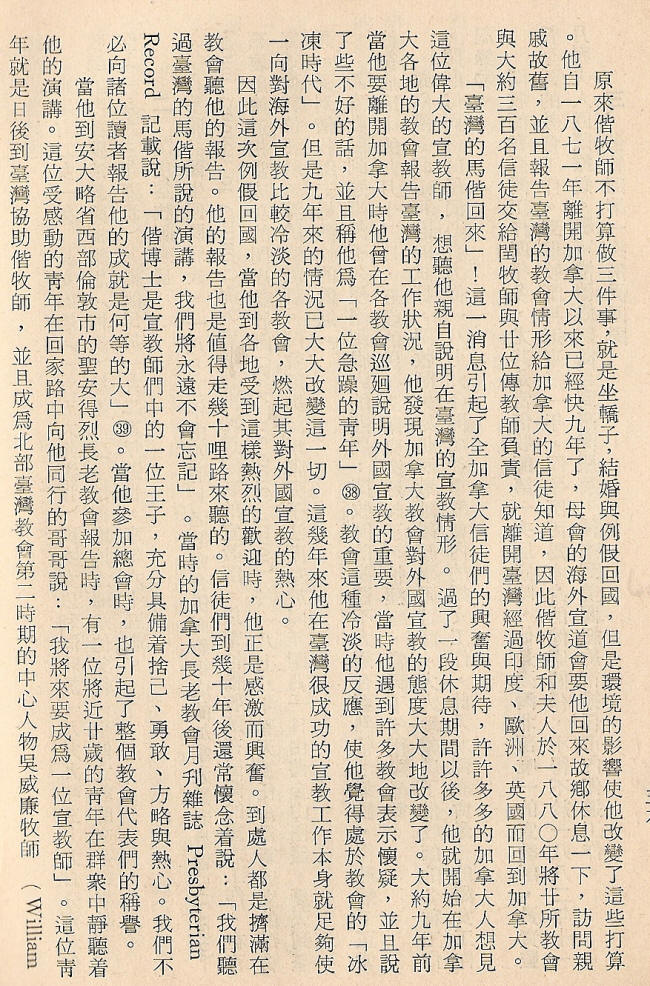 原來偕牧師不打算做三件事，就是坐轎子，結婚與例假回國，但是環境的影響使他改變了這些打算
。他自一八七一年離開加拿大以來已經快九年了，母會的海外宣道會要他回來故鄉休息一下，訪問親
戚故舊，並且報告臺灣的教會情形給加拿大的信徒知道，因此偕牧師和夫人於一八八〇年將廿所教會
與大約三百名信徒交給閏牧師與廿位傳教師負責，就離開臺灣經過印度、歐洲、英國而回到加拿大。
「臺灣的馬偕回來」！這一消息引起了全加拿大信徒們的興奮與期待，許許多多的加拿大人想見
這位偉大的宣教師，想聽他親自說明在臺灣的宣教情形。過了一段休息期間以後，他就開始在加拿
大各地的教會報告臺灣的工作狀況，他發現加拿大教會對外國宣教的態度大大地改變了。大約九年前
當他要離開加拿大時他曾在各教會巡廻說明外國宣教的重要，當時他遇到許多教會表示懷疑，並且說
了些不好的話，並且稱他爲「一位急躁的青年」㊳。教會這種冷淡的反應，使他覺得處於教會的「冰
凍時代」。但是九年來的情況已大大改變這一切。這幾年來他在臺灣很成功的宣教工作本身就足夠使
一向對海外宣教比較冷淡的各教會，燃起其對外國宣教的熱心。
因此這次例假回國，當他到各地受到這樣熱烈的歡迎時，他正是感激而興奮。到處人都是擠滿在
教會聽他的報告。他的報告也是值得走幾十哩路來聽的。信徒們到幾十年後還常懷念着說：「我們聽
過臺灣的馬偕所說的演講，我們將永遠不會忘記」。當時的加拿大長老教會月刊雜誌 Presbyterian
Record 記載說：「偕博士是宣教師們中的一位王子，充分具備着捨己、勇敢、方略與熱心。我們不
必向諸位讀者報告他的成就是何等的大」㊴。當他參加總會時，也引起了整個教會代表們的稱譽。
當他到安大略省西部倫敦市的聖安得烈長老教會報告時，有一位將近廿歲的靑年在群衆中靜聽着
他的演講。這位受感動的靑年在回家路中向他同行的哥哥說：「我將來要成爲一位宣教師」。這位靑
年就是日後到臺灣協助偕牧師，並且成爲北部臺灣教會第二時期的中心人物吳威廉牧師（William